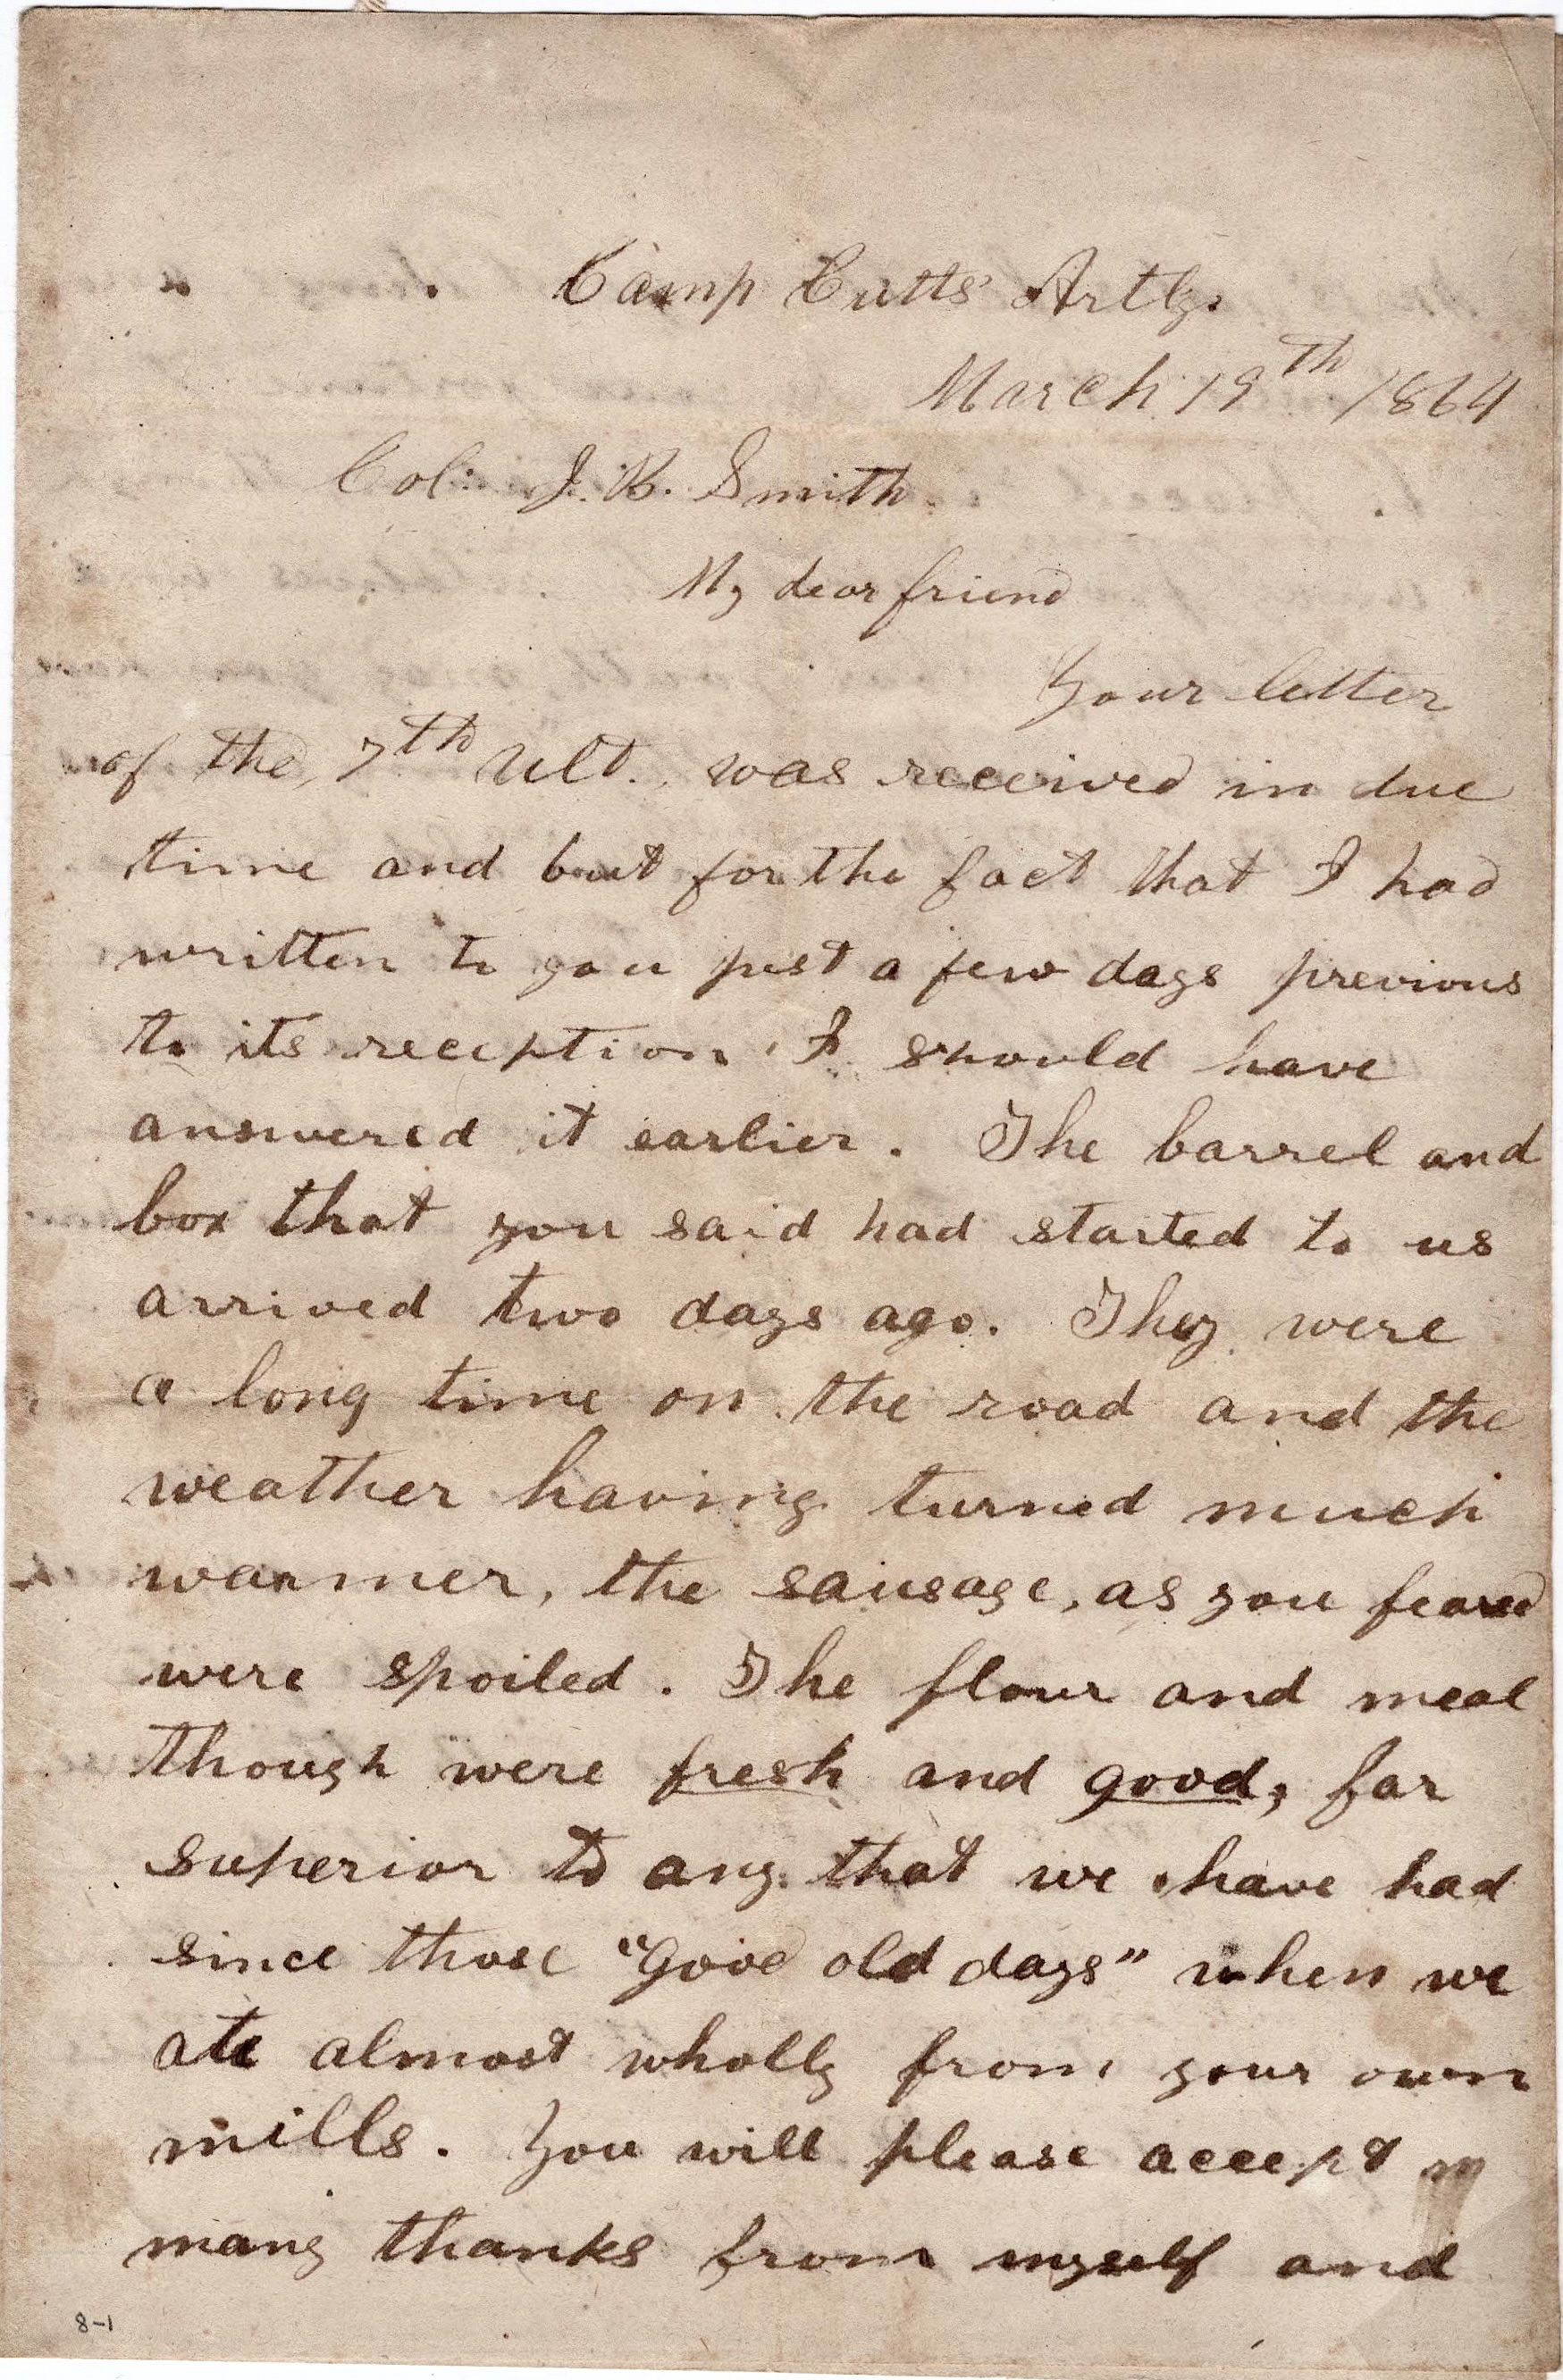 Camp Cutts' Artly.
March 19th 1864
Col. J. B. Smith
My dear friend
Your letter
of the 7th Ult. was received in due
time and but for the fact that I had
written to you just a few days previous
to its reception I should have
answered it earlier. The barrel and
box that you said had started to us
arrived two days ago. They were
a long time on the road and the
weather having turned much
warmer, the sausage, as you feared
were spoiled. The flour and meal
though were fresh and good, far
superior to any that we have had
since those "good old days" when we
ate almost wholly from your own
mills. You will please accept
many thanks from myself and
8-1